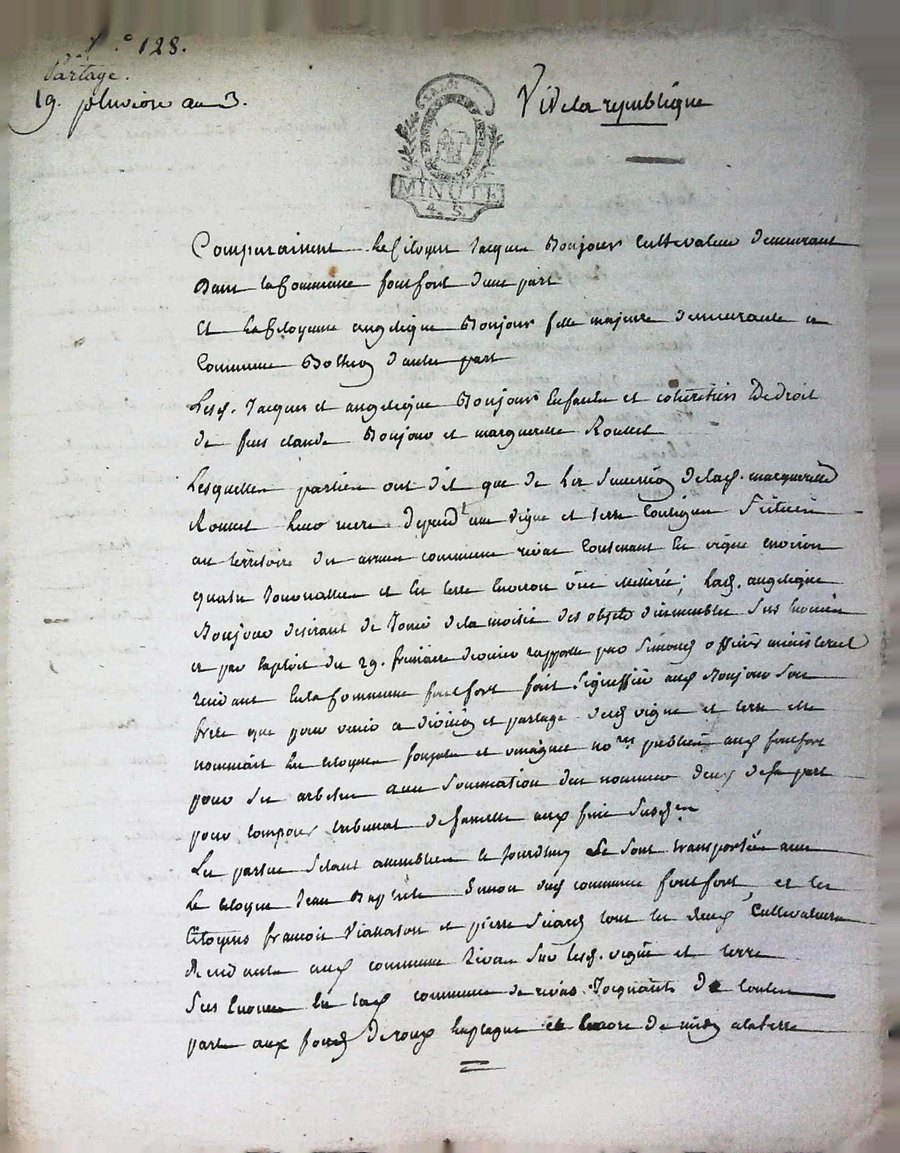 N.° 128.
Partage.
19. pluviose an 3.
Vive la republique
MINUTE
4. S.
Comparaissent le Citoyen Jacques Bonjour Cultivateur demeurant
dans la Commune fontfort d'une part
Et la Citoyenne angelique Bonjour fille majeure demeurante a
Commune d'autre part
Lesd. Jacques et angelique Bonjour Enfants et cohéritiers de droit
de feus claude Bonjour et marguerite Rousset
Lesquelles parties ont dit que de de lad. marguerite
Rousset leur mere depend une vigne et terre Contigue Situées
au territoire de commune rivas Contenant En vigne environ
quatre et En terre Environ une ; Lad. angelique
Bonjour desirant de Jouir de la moitié des objets d'immeubles Sus Enoncés
a par Exploit du 29. frimaire dernier rapporté par Simond officier ministeriel
residant En la Commune fontfort fait Signiffier aud. Bonjour Son
frere que pour venir a division et partage desd. vigne et terre elle
nommait les citoyens et no.res publics aud. fontfort
pour Ses arbitres avec Sommation d'en nommer deux de sa part
pour Composer tribunal de famille aux fins Susd.es
Les parties S'etant assemblées Ce Jourdhuy Se Sont transportées avec
le citoyen Jean Baptiste Simon dud. commune fontfort, et les
Citoyens francois et pierre tous les deux Cultivateurs
residants aud. commune Rivas Sur lesd. vigne et terre
Sus Enoncées En lad. commune de rivas Joignants de toutes
parts aux fonds de et encore de midy a la terre